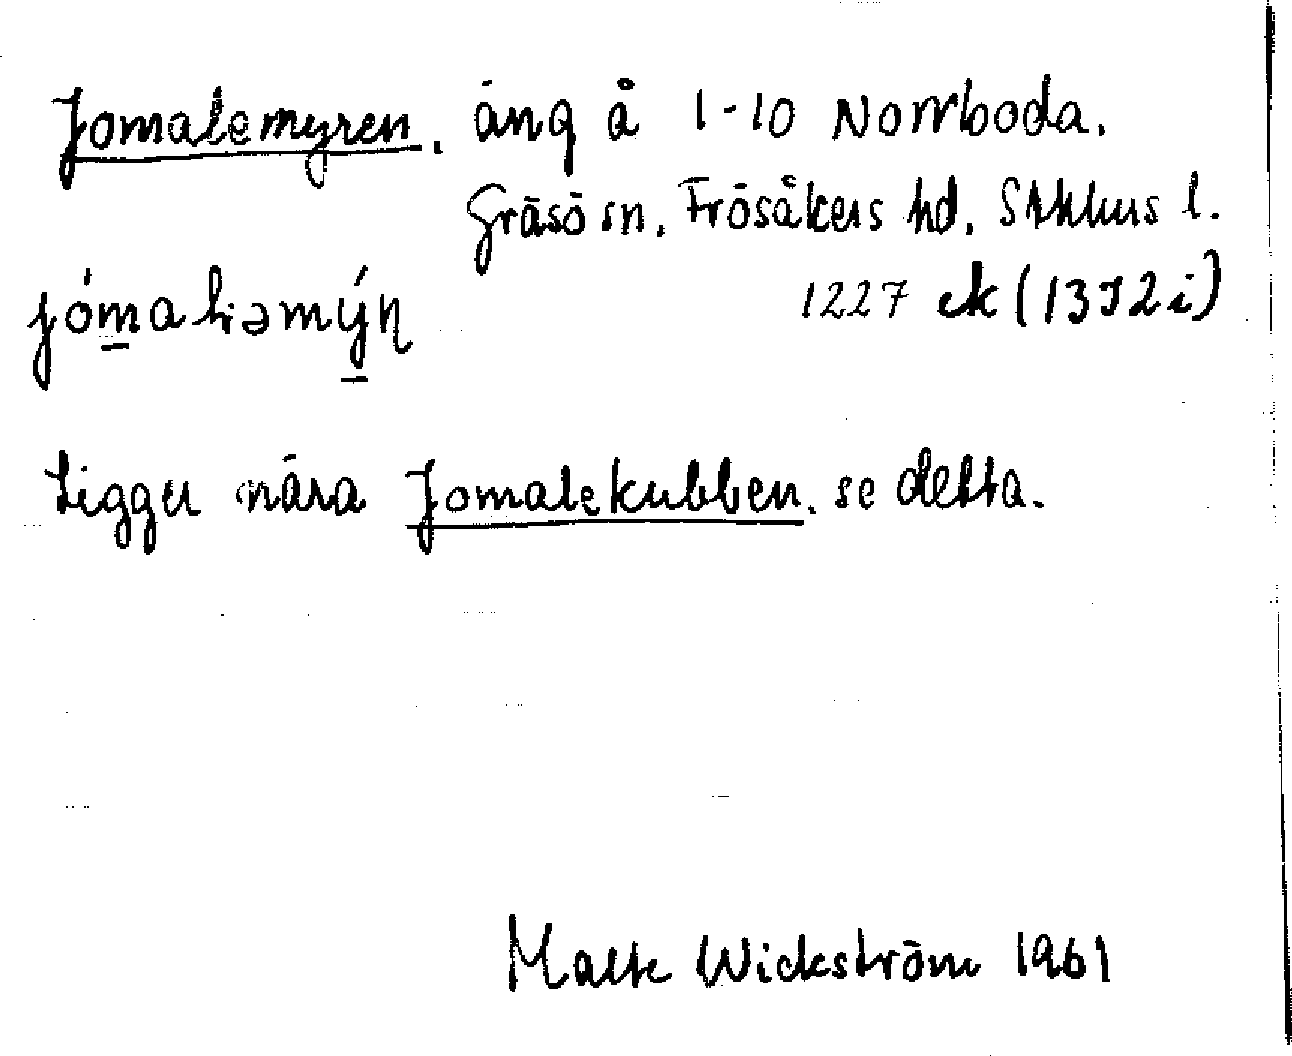 Jomalemyren. äng å 1-10 Norrboda.
Gräsö sn. Frösåkers hd. Sthlms l.
1227 ek (13I2i)
Ligger nära Jomalekubben. se detta.
Malte Wickström 1961